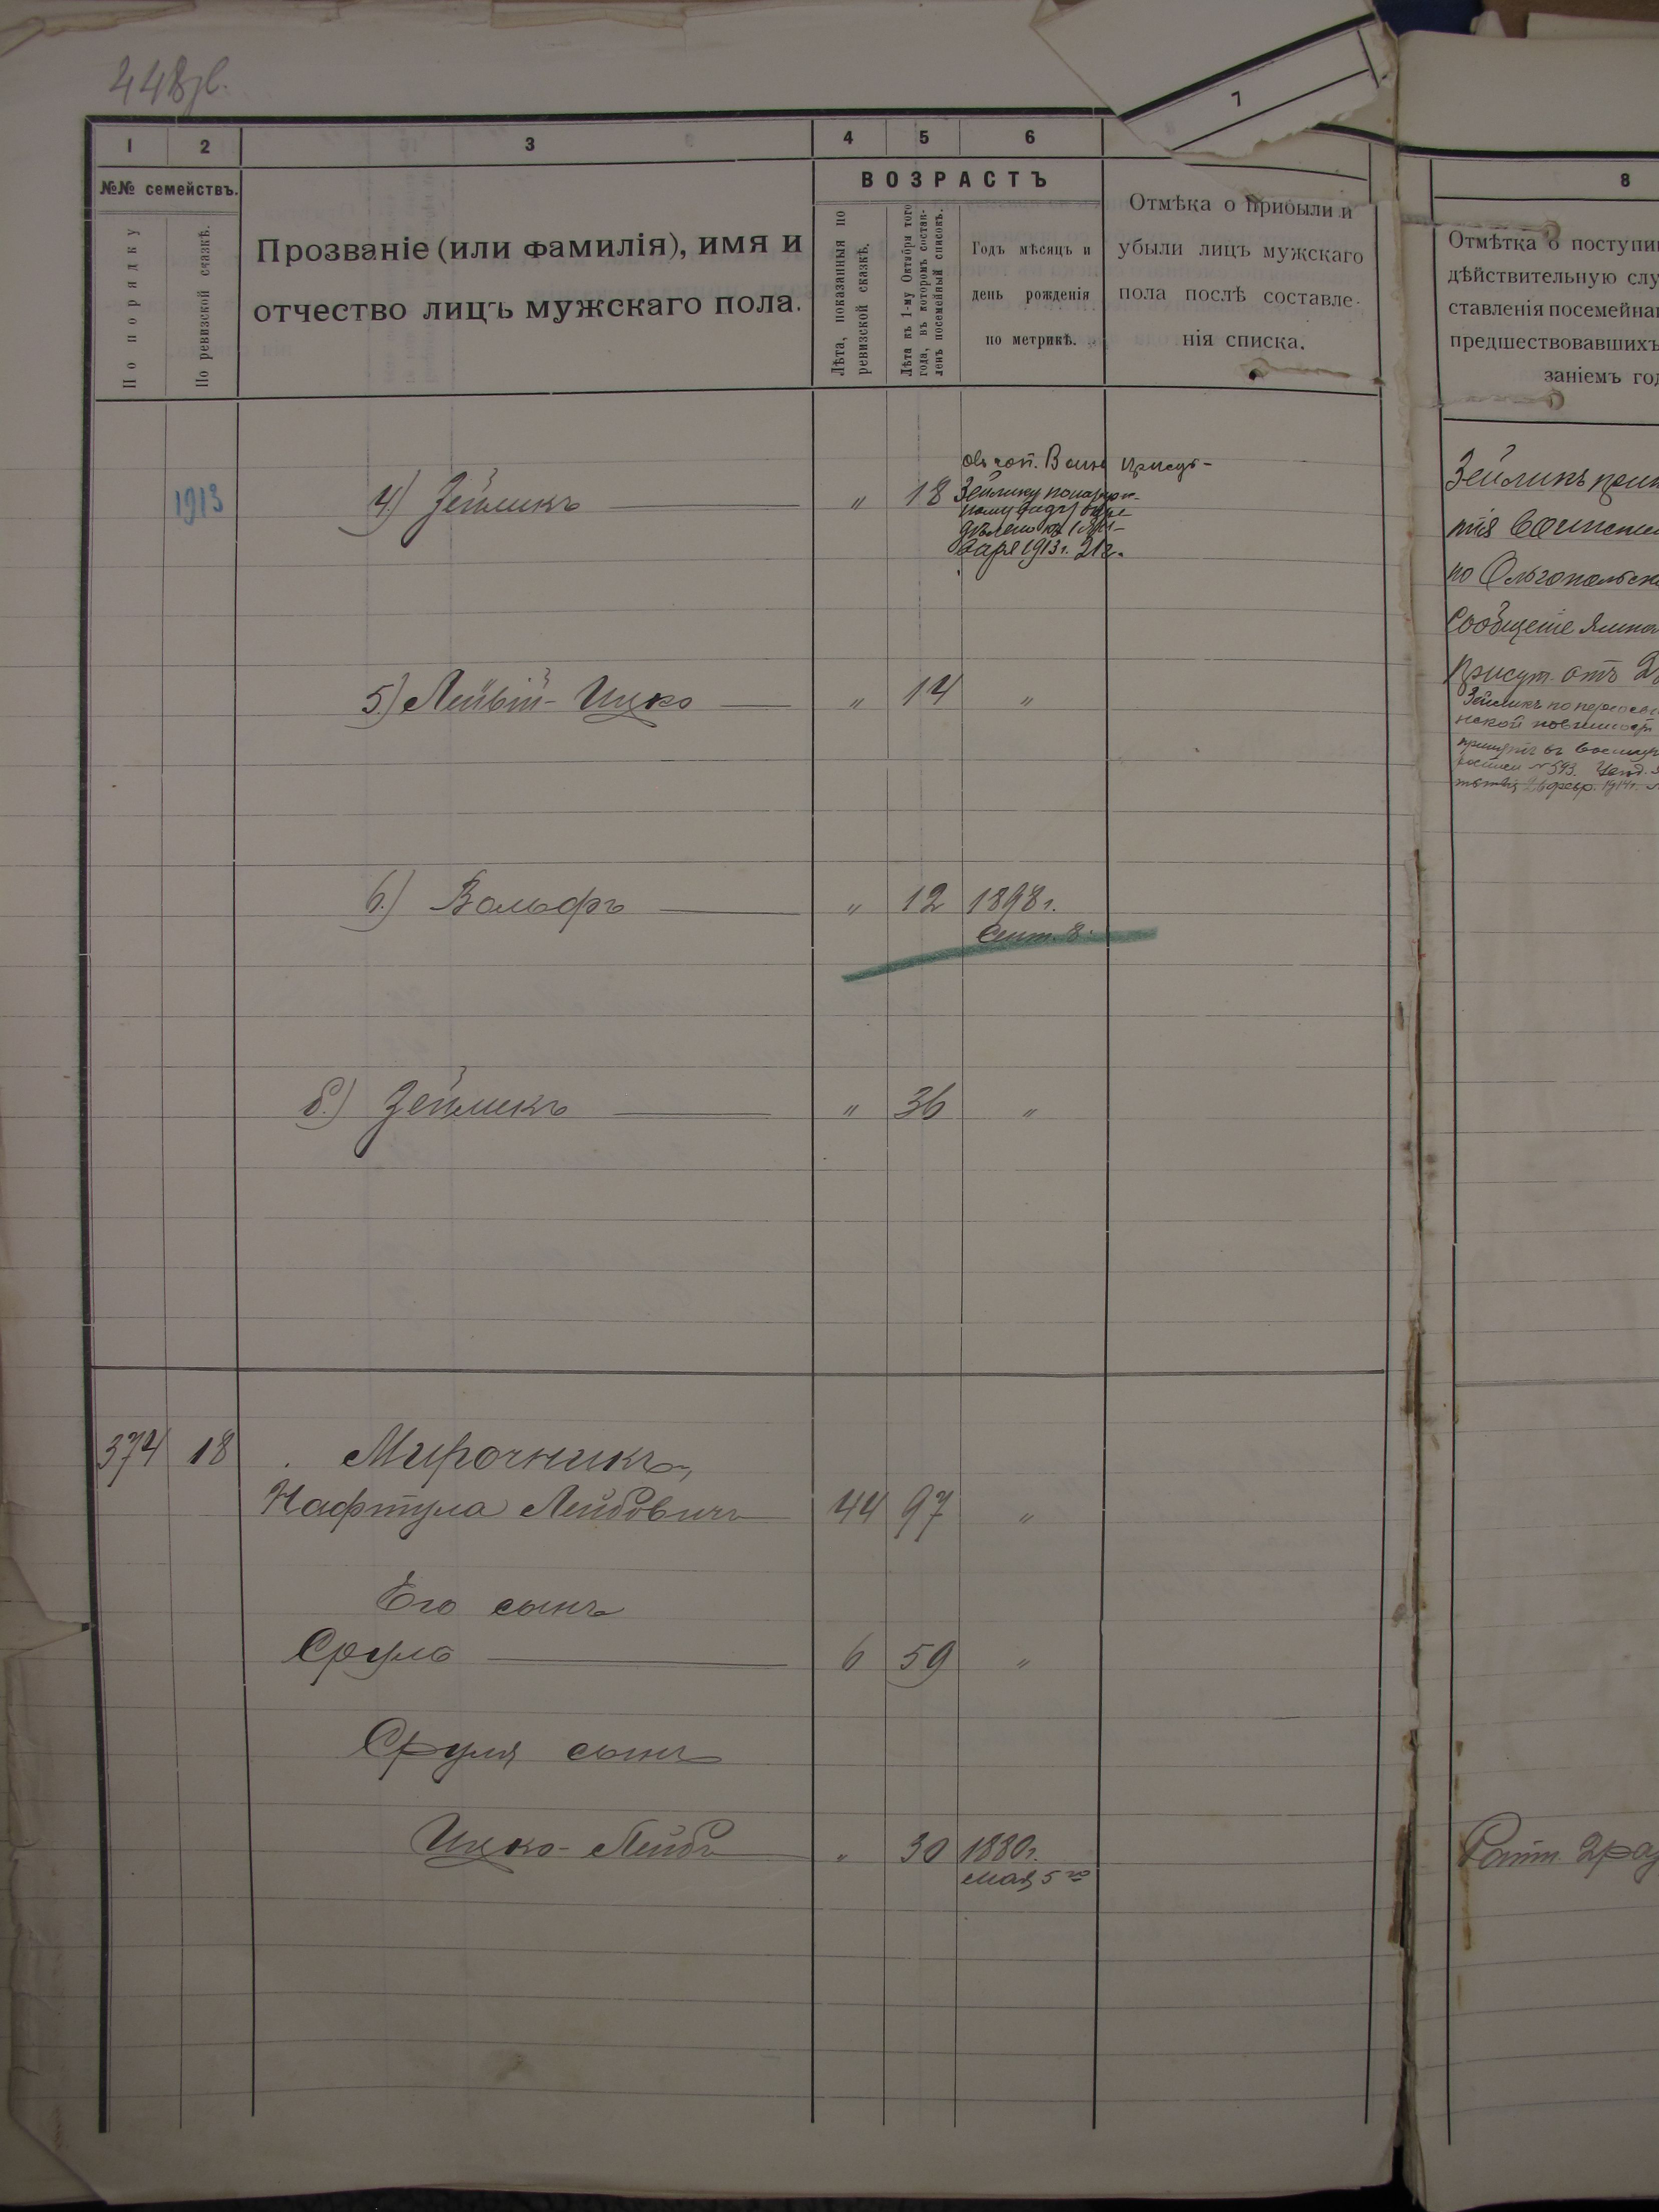 448 об.
1
2
3
4
5
6
7
8
№№ семействъ.
По порядку
По ревизской сказкѣ.
Прозваніе (или фамилія), имя и
отчество лицъ мужскаго пола.
ВОЗРАСТЪ
Лѣта, показанныя по
ревизской сказкѣ.
Лѣта къ 1-му Октября того
года, въ которомъ состав-
ленъ посемейный списокъ.
Годъ мѣсяцъ и
день рожденія
по метрикѣ.
Отмѣка о прибыли и
убыли лицъ мужскаго
пола послѣ составле-
нія списка.
Отмѣтка о поступи
дѣйствительную слу
ставленія посемейна
предшествовавшихъ
заніемъ год
1913
4.) Зейликъ — " 18
Зейлику по наруж-
ному виду опре-
дѣлено къ 1 Ян-
варя 1913 г. 21 г.
Зейликъ
по Ольгопольск
Сообщеніе
Присут. отъ
№ 593.
26 февр. 1914 г.
5.) Лейвій-Ицко — " 14 "
6.) Вольфъ — " 12 1898 г.
Сент. 8
б.) Зейликъ — " 36 "
374 18 Мирочникъ,
Нафтула Лейбовичъ 44 97 "
Его сынъ
Сруль — 6 59 "
Сруля сынъ
Ицко-Лейбъ " 30 1880 г.
мая 5го
Ратн. 2 раз